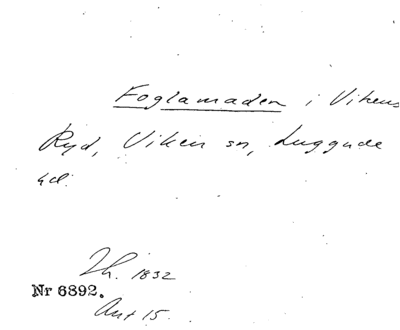 Foglamaden i Vikens
Ryd, Viken sn, Luggude
hd.
Th. 1832
Nr 6892.
Ant 15.